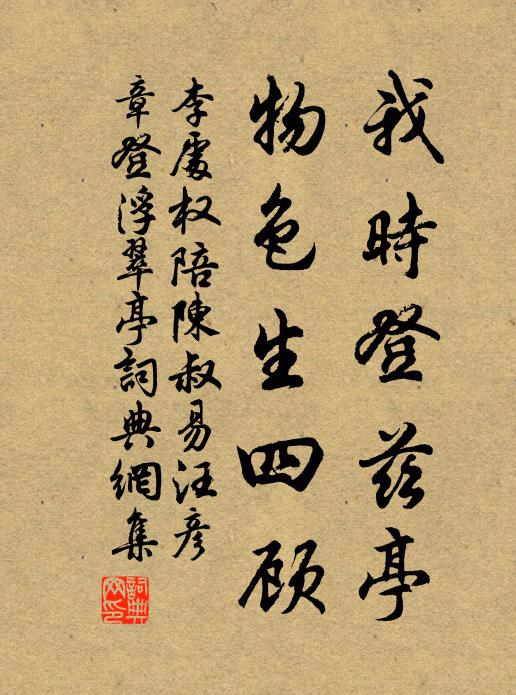 我時登茲亭
物色生四顾
李處权陪陳叔易汪彦
章登浮翠亭詞典網集
詞典网印